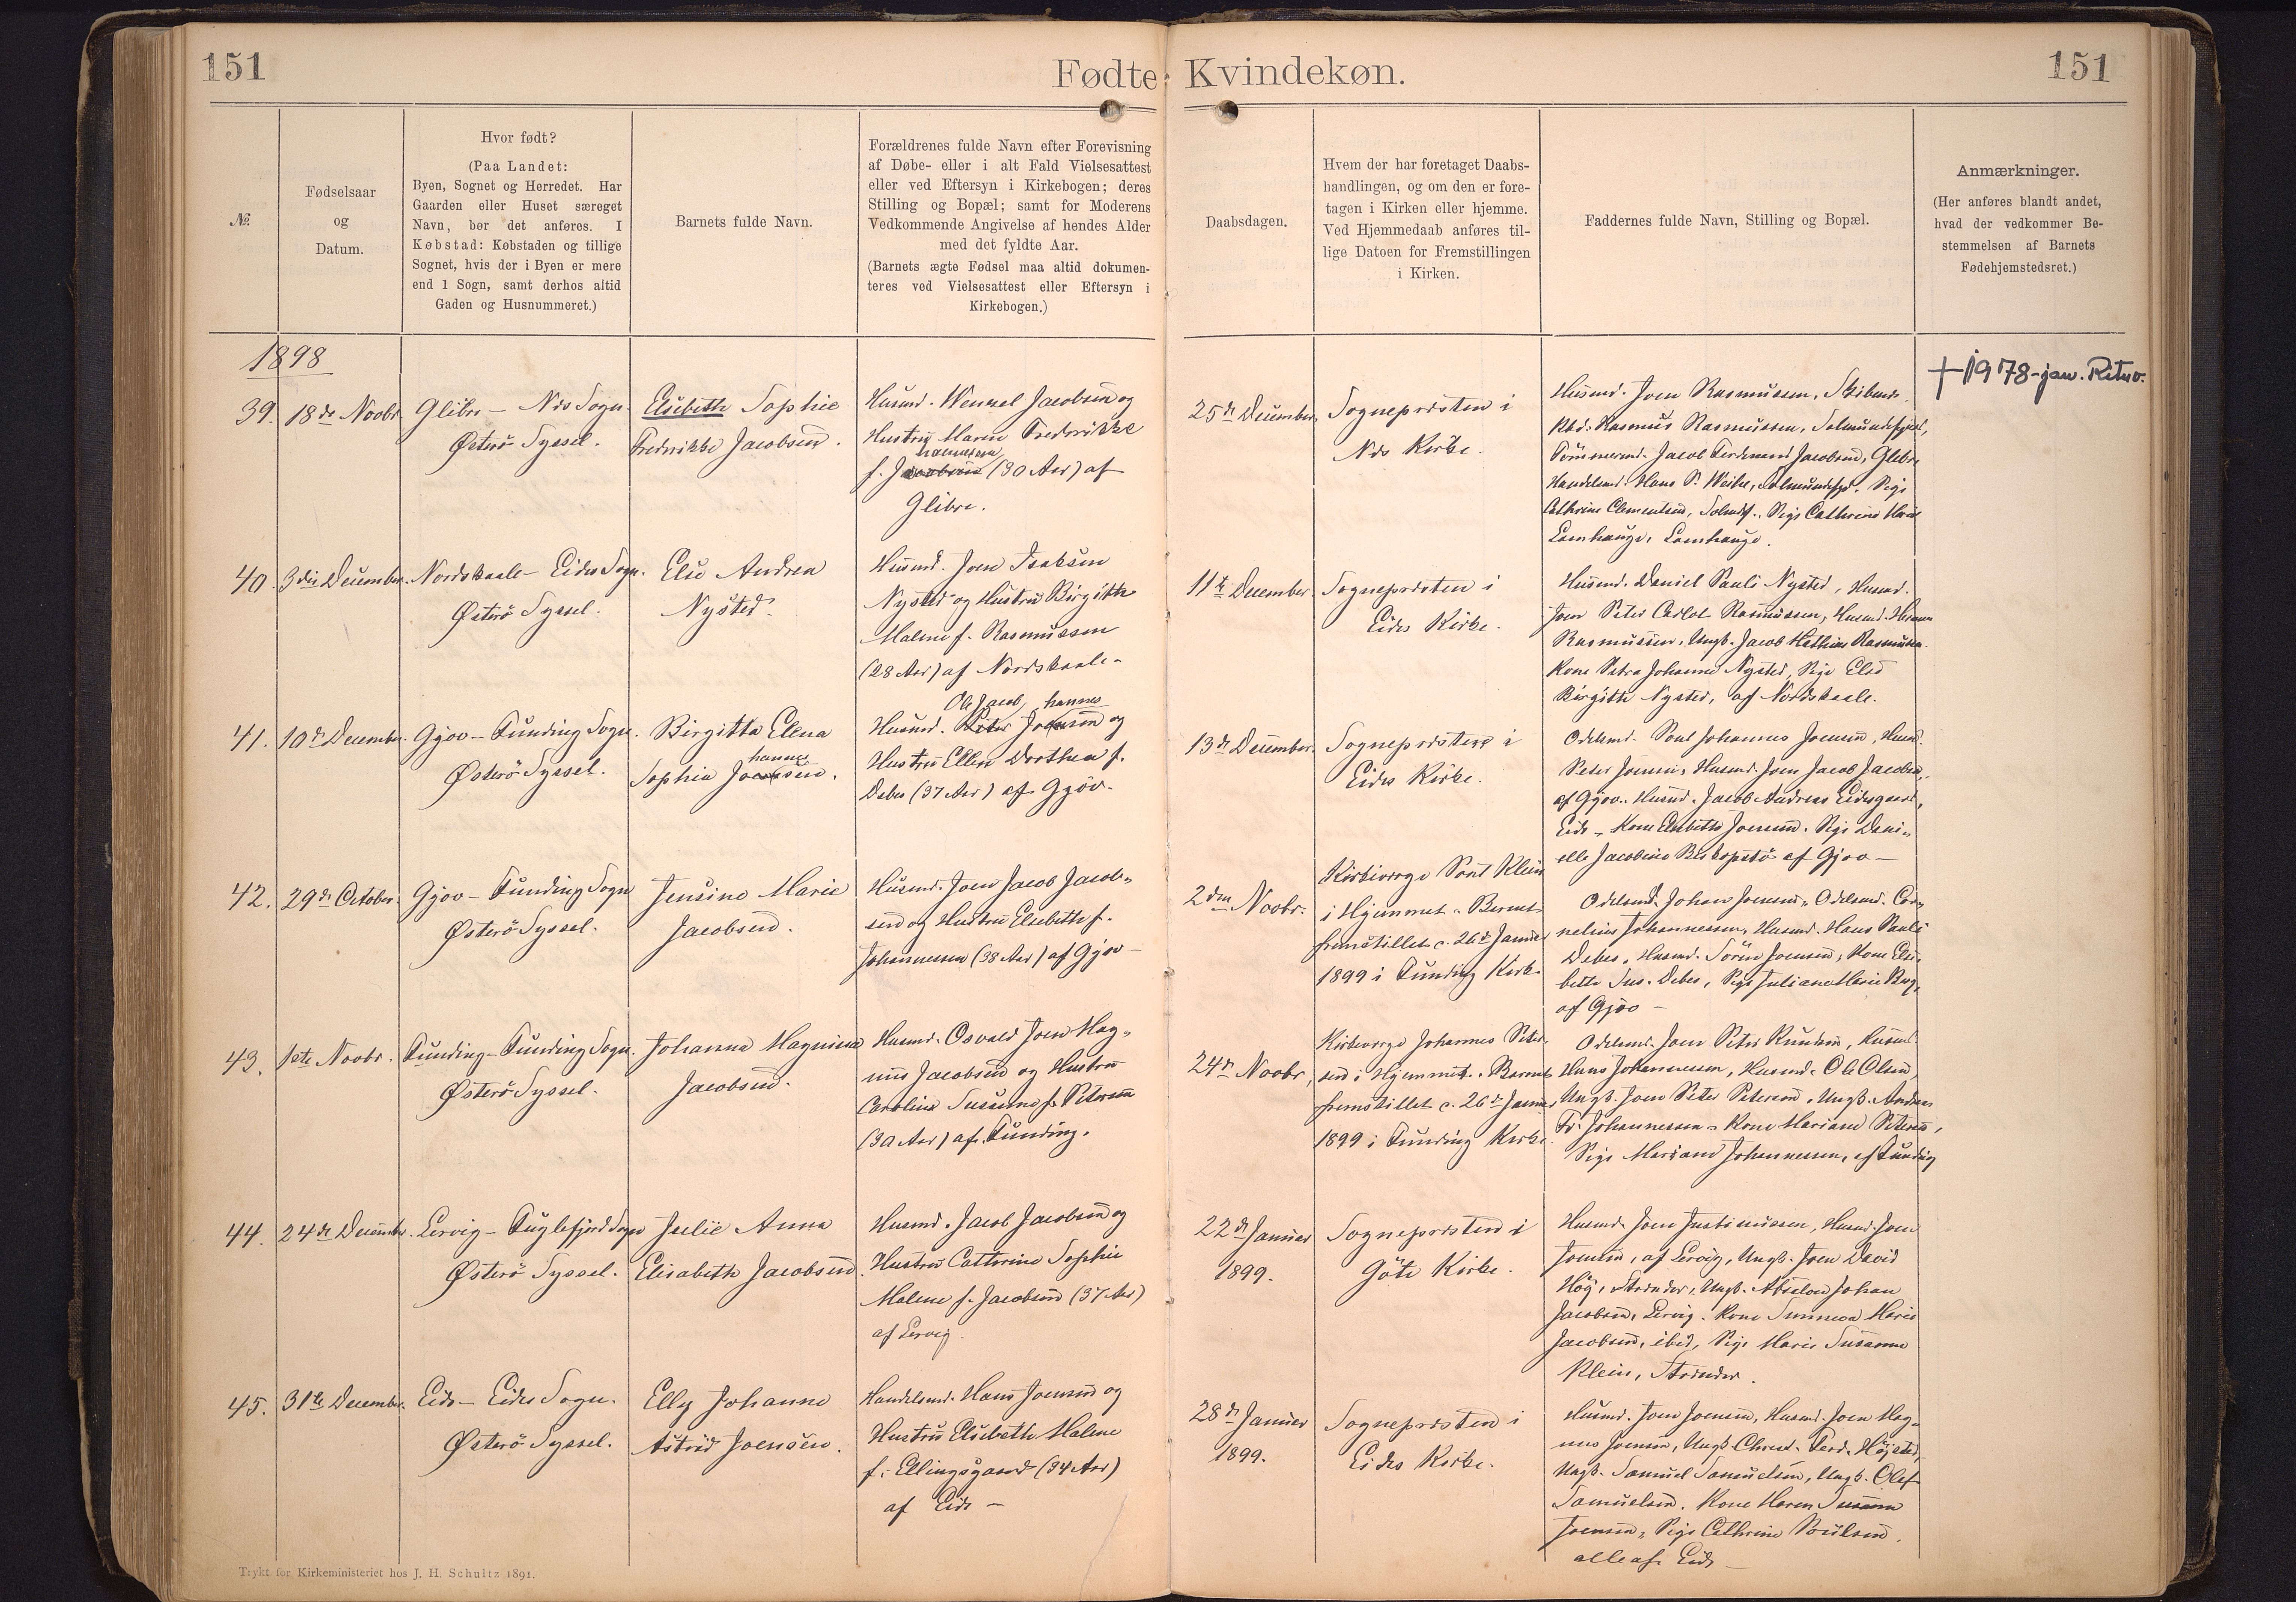 151
Fødte Kvindekøn.
151
№
Fødselsaar
og
Datum.
Hvor født?
(Paa Landet:
Byen, Sognet og Herredet. Har
Gaarden eller Huset særeget
Navn, bør det anføres. I
Købstad: Købstaden og tillige
Sognet, hvis der i Byen er mere
end 1 Sogn, samt derhos altid
Gaden og Husnummeret.)
Barnets fulde Navn.
Forældrenes fulde Navn efter Forevisning
af Døbe- eller i alt Fald Vielsesattest
eller ved Eftersyn i Kirkebogen; deres
Stilling og Bopæl; samt for Moderens
Vedkommende Angivelse af hendes Alder
med det fyldte Aar.
(Barnets ægte Fødsel maa altid dokumen-
teres ved Vielsesattest eller Eftersyn i
Kirkebogen.)
Daabsdagen.
Hvem der har foretaget Daabs-
handlingen, og om den er fore-
tagen i Kirken eller hjemme.
Ved Hjemmedaab anføres til-
lige Datoen for Fremstillingen
i Kirken.
Faddernes fulde Navn, Stilling og Bopæl.
Anmærkninger.
(Her anføres blandt andet,
hvad der vedkommer Be-
stemmelsen af Barnets
Fødehjemstedsret.)
1898
39.
18de Novbr.
Glibre – Næs Sogn.
Østerö Syssel.
Elsebeth Sophie
Fredrikke Jacobsen.
Husmd. Wenzel Jacobsen og
Hustru Maren Frederikke
f. (30 Aar) af
Glibre.
25de December.
Sognepræsten i
Næs Kirke.
Husmd. Joen Rasmussen, Skibenæs,
Kbd. Rasmus Rasmussen, Solmundefjord,
Tömmermd. Jacob Ferdinand Jacobsen, Glibre
Handelsmd. Hans P. Weihe, Solmundefjd. Pige
Cathrine Clementsen, Solmdf., Pige Cathrine Marie
Lamhauge, Lamhauge.
+ 1978-jan. Rituv.
40.
3die December.
Nordskaale – Eides Sogn.
Østerö Syssel.
Else Andrea
Nysted.
Husmd. Joen Isaksen
Nysted og Hustru Birgitte
Malene f. Rasmussen
(28 Aar) af Nordskaale –
11te December.
Sognepræsten i
Eides Kirke.
Husmd. Daniel Pauli Nysted, Husmd.
Joen Peter Carlot Rasmussen, Husmd.
Rasmussen, Ungk. Jacob Mathias Rasmussen
Kone Petra Johanne Nysted, Pige Else
Birgitte Nysted, af Nordskaale.
41.
10de December.
Gjov – Funding Sogn.
Østerö Syssel.
Birgitta Elena
hannes
Sophia Joensen.
Ole Jacob hannes
Husmd. Peter Joensen og
Hustru Ellen Dorthea f.
Debes (37 Aar) af Gjöv.
13de December.
Sognepræsten i
Eides Kirke.
Odelsmd. Poul Johannes Joensen, Husmd.
Peter Joensen, Husmd. Joen Jacob Jacobsen,
af Gjov. Husmd. Jacob Andreas Eidesgaard,
Eide – Kone Elsebeth Joensen. Pige Dani-
elle Jacobine Biskopstö af Gjov –
42.
29de October.
Gjov – Funding Sogn
Østerö Syssel.
Jensine Marie
Jacobsen.
Husmd. Joen Jacob Jacob-
sen og Hustru Elsebeth f.
Johannessen (38 Aar) af Gjov –
2den Novbr.
Kirkeværge Poul Klein
i Hjemmet – Barnet
fremstillet d. 26de Januar
1899 i Funding Kirke
Odelsmd. Johan Joensen, Odelsmd. Cor-
nelius Johannessen, Husmd. Hans Pauli
Debes, Husmd. Sören Joensen, Kone Else-
beth Sus. Debes, Pige Juliane Marie
af Gjov –
43.
1ste Novbr.
Funding – Funding Sogn.
Østerö Syssel.
Johanna Magnina
Jacobsen.
Husmd. Osvald Joen Mag-
nus Jacobsen og Hustru
Caroline Susanne f. Petersen
(30 Aar) af Funding.
24de Novbr.
Kirkeværge Johannes Peter-
sen i Hjemmet. Barnet
fremstillet d. 26de Januar
1899 i Funding Kirke
Odelsmd. Joen Peter Knudsen, Husmd.
Hans Johannessen, Husmd. Ole Olsen,
Ungk. Joen Peter Petersen, Ungk. Andreas
Fr. Johannessen – Kone Mariane Petersen,
Pige Mariane Johannessen, af Funding
44.
24de Decembr.
Lervig – Fuglefjord Sogn
Østerö Syssel.
Julie Anna
Elisabeth Jacobsen.
Husmd. Jacob Jacobsen og
Hustru Cathrine Sophie
Malene f. Jacobsen (37 Aar)
af Lervig.
22de Januar
1899.
Sognepræsten i
Göte Kirke.
Husmd. Joen Justinussen, Husmd. Joen
Joensen, af Lervig, Ungk. Joen David
Höj, Strænder, Ungk. Absalon Johan
Jacobsen, Lervig. Kone Sunneva Marie
Jacobsen, ibid, Pige Marie Susanne
Klein, Strænder.
45.
31te December.
Eide – Eides Sogn.
Østerö Syssel.
Elly Johanne
Astrid Joensen.
Handelsmd. Hans Joensen og
Hustru Elsebeth Malene
f. Ellingsgaard (34 Aar)
af Eide –
28de Januar
1899.
Sognepræsten i
Eides Kirke.
Husmd. Joen Joensen, Husmd. Joen Mag-
nus Joensen, Ungk. Christ. Ferd. Höjsted,
Ungk. Samuel Samuelsen, Ungk. Olef
Samuelsen. Kone Maren Susanne
Joensen, Pige Cathrine Poulsen,
alle af Eide –
Trykt for Kirkeministeriet hos J. H. Schultz 1891.